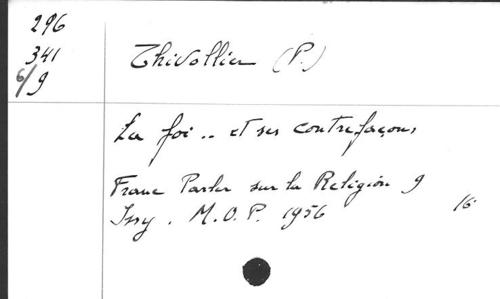 296
341
6/9
Thivollier (P.)
La foi .. et ses contrefaçons
Franc Parler sur la Religion 9
Issy . M.O.P. 1956 16